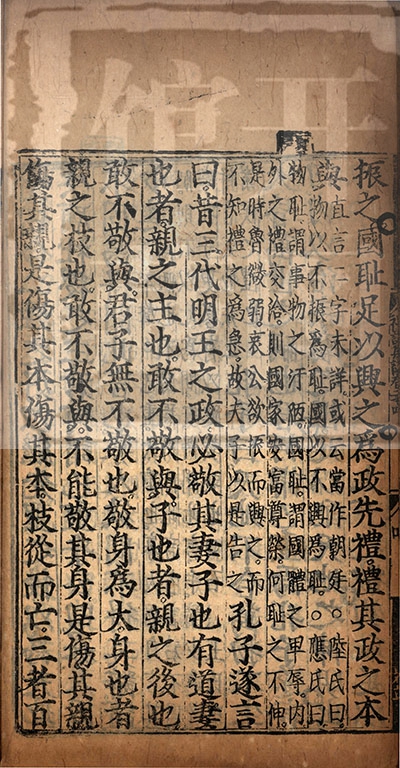 振之國恥足以興之爲政先禮。禮其政之本
與
直言二字未詳或云當作朝廷。○陸氏曰
物以不振爲恥。國以不興爲恥。○應氏曰
物恥謂事物之汙陋。國恥謂國體之卑辱。內
外之禮交治。則國家安富尊榮。何恥之不伸。
是時魯微弱。哀公欲振而興之。而
不知禮之爲急。故夫子以是告之
孔子遂言
曰。昔三代明王之政必敬其妻子也有道妻
也者。親之主也。敢不敬與。子也者親之後也
敢不敬與。君子無不敬也。敬身爲太身也者
親之枝也。敢不敬與。不能敬其身。是傷其親
傷其親。是傷其本。傷其本。枝從而亡。三者百